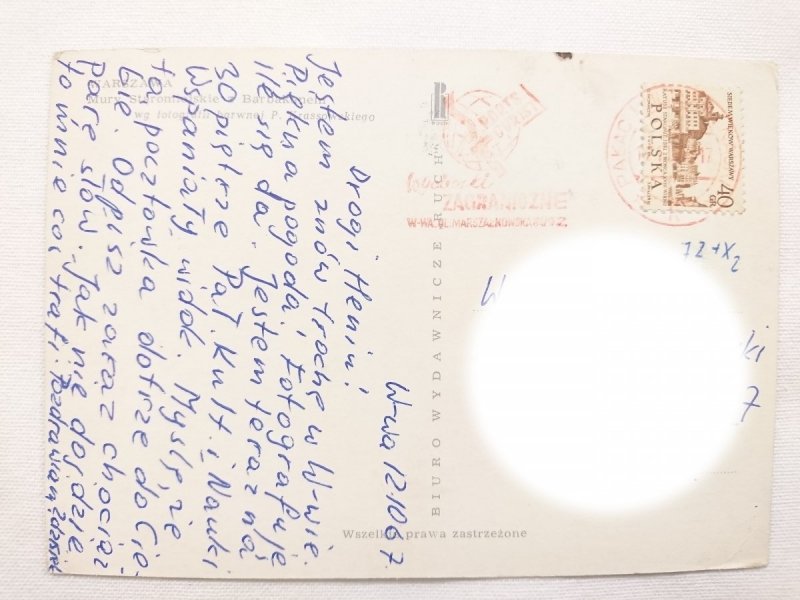 WARSZAWA
Mury Staromiejskie z Barbakanem
wg fotografii barwnej P. Krassowskiego
W-wa 12.10.67
Drogi Heniu!
Jestem znów trochę w W-wie.
Piękna pogoda, fotografuję
ile się da. Jestem teraz na
30 piętrze Pał. Kult. i Nauki
Wspaniały widok. Myślę, że
ta pocztówka dotrze do Cie-
bie. Odpisz zaraz chociaż
parę słów. Jak nie dojdzie
to mnie coś trafi. Pozdrawiam
BIURO WYDAWNICZE „RUCH”
Wszelkie prawa zastrzeżone
ZAGRANICZNE
W-WA, UL. MARSZAŁKOWSKA
SIEDEM WIEKÓW WARSZAWY
POLSKA
40
GR